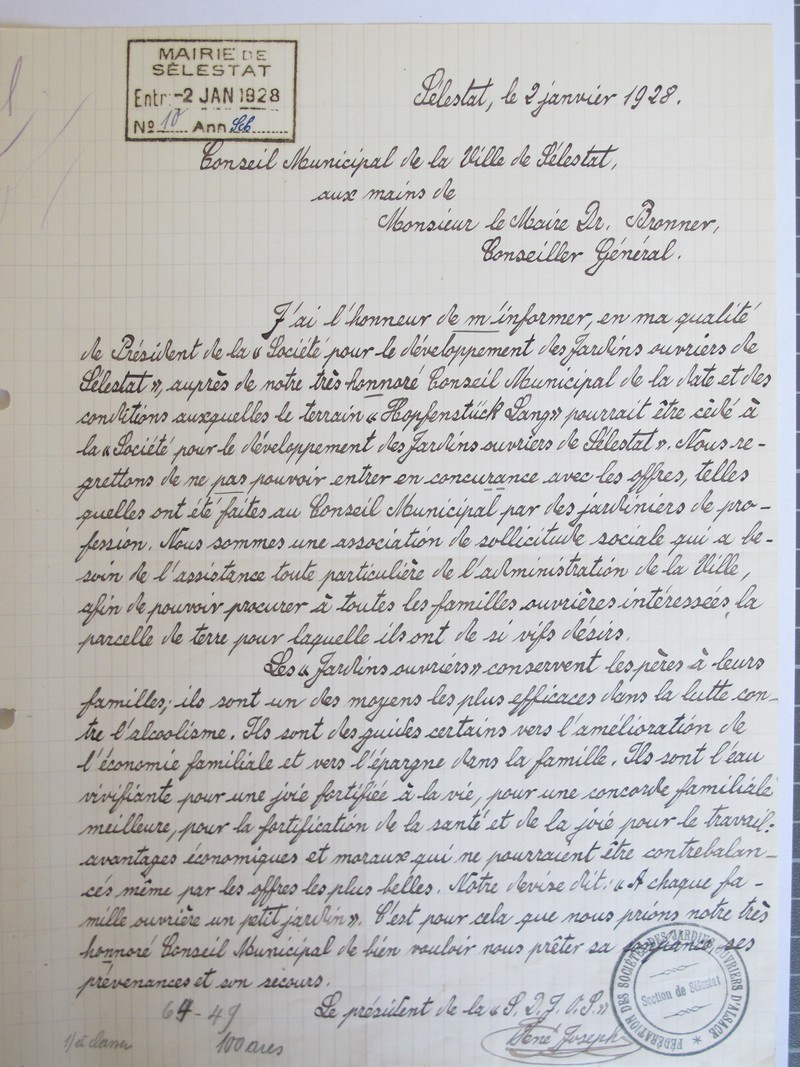 MAIRIE DE
SÉLESTAT
Entr. -2 JAN 1928
No 10 Ann Sch
Sélestat, le 2 janvier 1928.
Conseil Municipal de la Ville de Sélestat,
aux mains de
Monsieur le Maire Dr. Bronner,
Conseiller Général.
J'ai l'honneur de m'informer, en ma qualité
de Président de la « Société pour le développement des Jardins ouvriers de
Sélestat », auprès de notre très honnoré Conseil Municipal de la date et des
conditions auxquelles le terrain « Hopfenstück Lang » pourrait être cèdé à
la « Société pour le développement des Jardins ouvriers de Sélestat ». Nous re-
grettons de ne pas pouvoir entrer en concurance avec les offres, telles
quelles ont été faites au Conseil Municipal par des jardiniers de pro-
fession. Nous sommes une association de sollicitude sociale qui a be-
soin de l'assistance toute particulière de l'administration de la Ville,
afin de pouvoir procurer à toutes les familles ouvrières intéressées, la
parcelle de terre pour laquelle ils ont de si vifs désirs.
Les « Jardins ouvriers » conservent les pères à leurs
familles; ils sont un des moyens les plus efficaces dans la lutte con-
tre l'alcoolisme. Ils sont des guides certains vers l'amélioration de
l'économie familiale et vers l'épargne dans la famille. Ils sont l'eau
vivifiante pour une joie fortifiée à la vie, pour une concorde familiale
meilleure, pour la fortification de la santé et de la joie pour le travail:
avantages économiques et moraux qui ne pourraient être contrebalan-
cés même par les offres les plus belles. Notre devise dit: « A chaque fa-
mille ouvrière un petit jardin ». C'est pour cela que nous prions notre très
honnoré Conseil Municipal de bien vouloir nous prêter sa confiance, ses
prévenances et son secours.
Le président de la « S. D. J. O. S. »
René Joseph
FÉDÉRATION DES SOCIÉTÉS DES JARDINS OUVRIERS D'ALSACE
Section de Sélestat
64 - 49
100 ares
classer